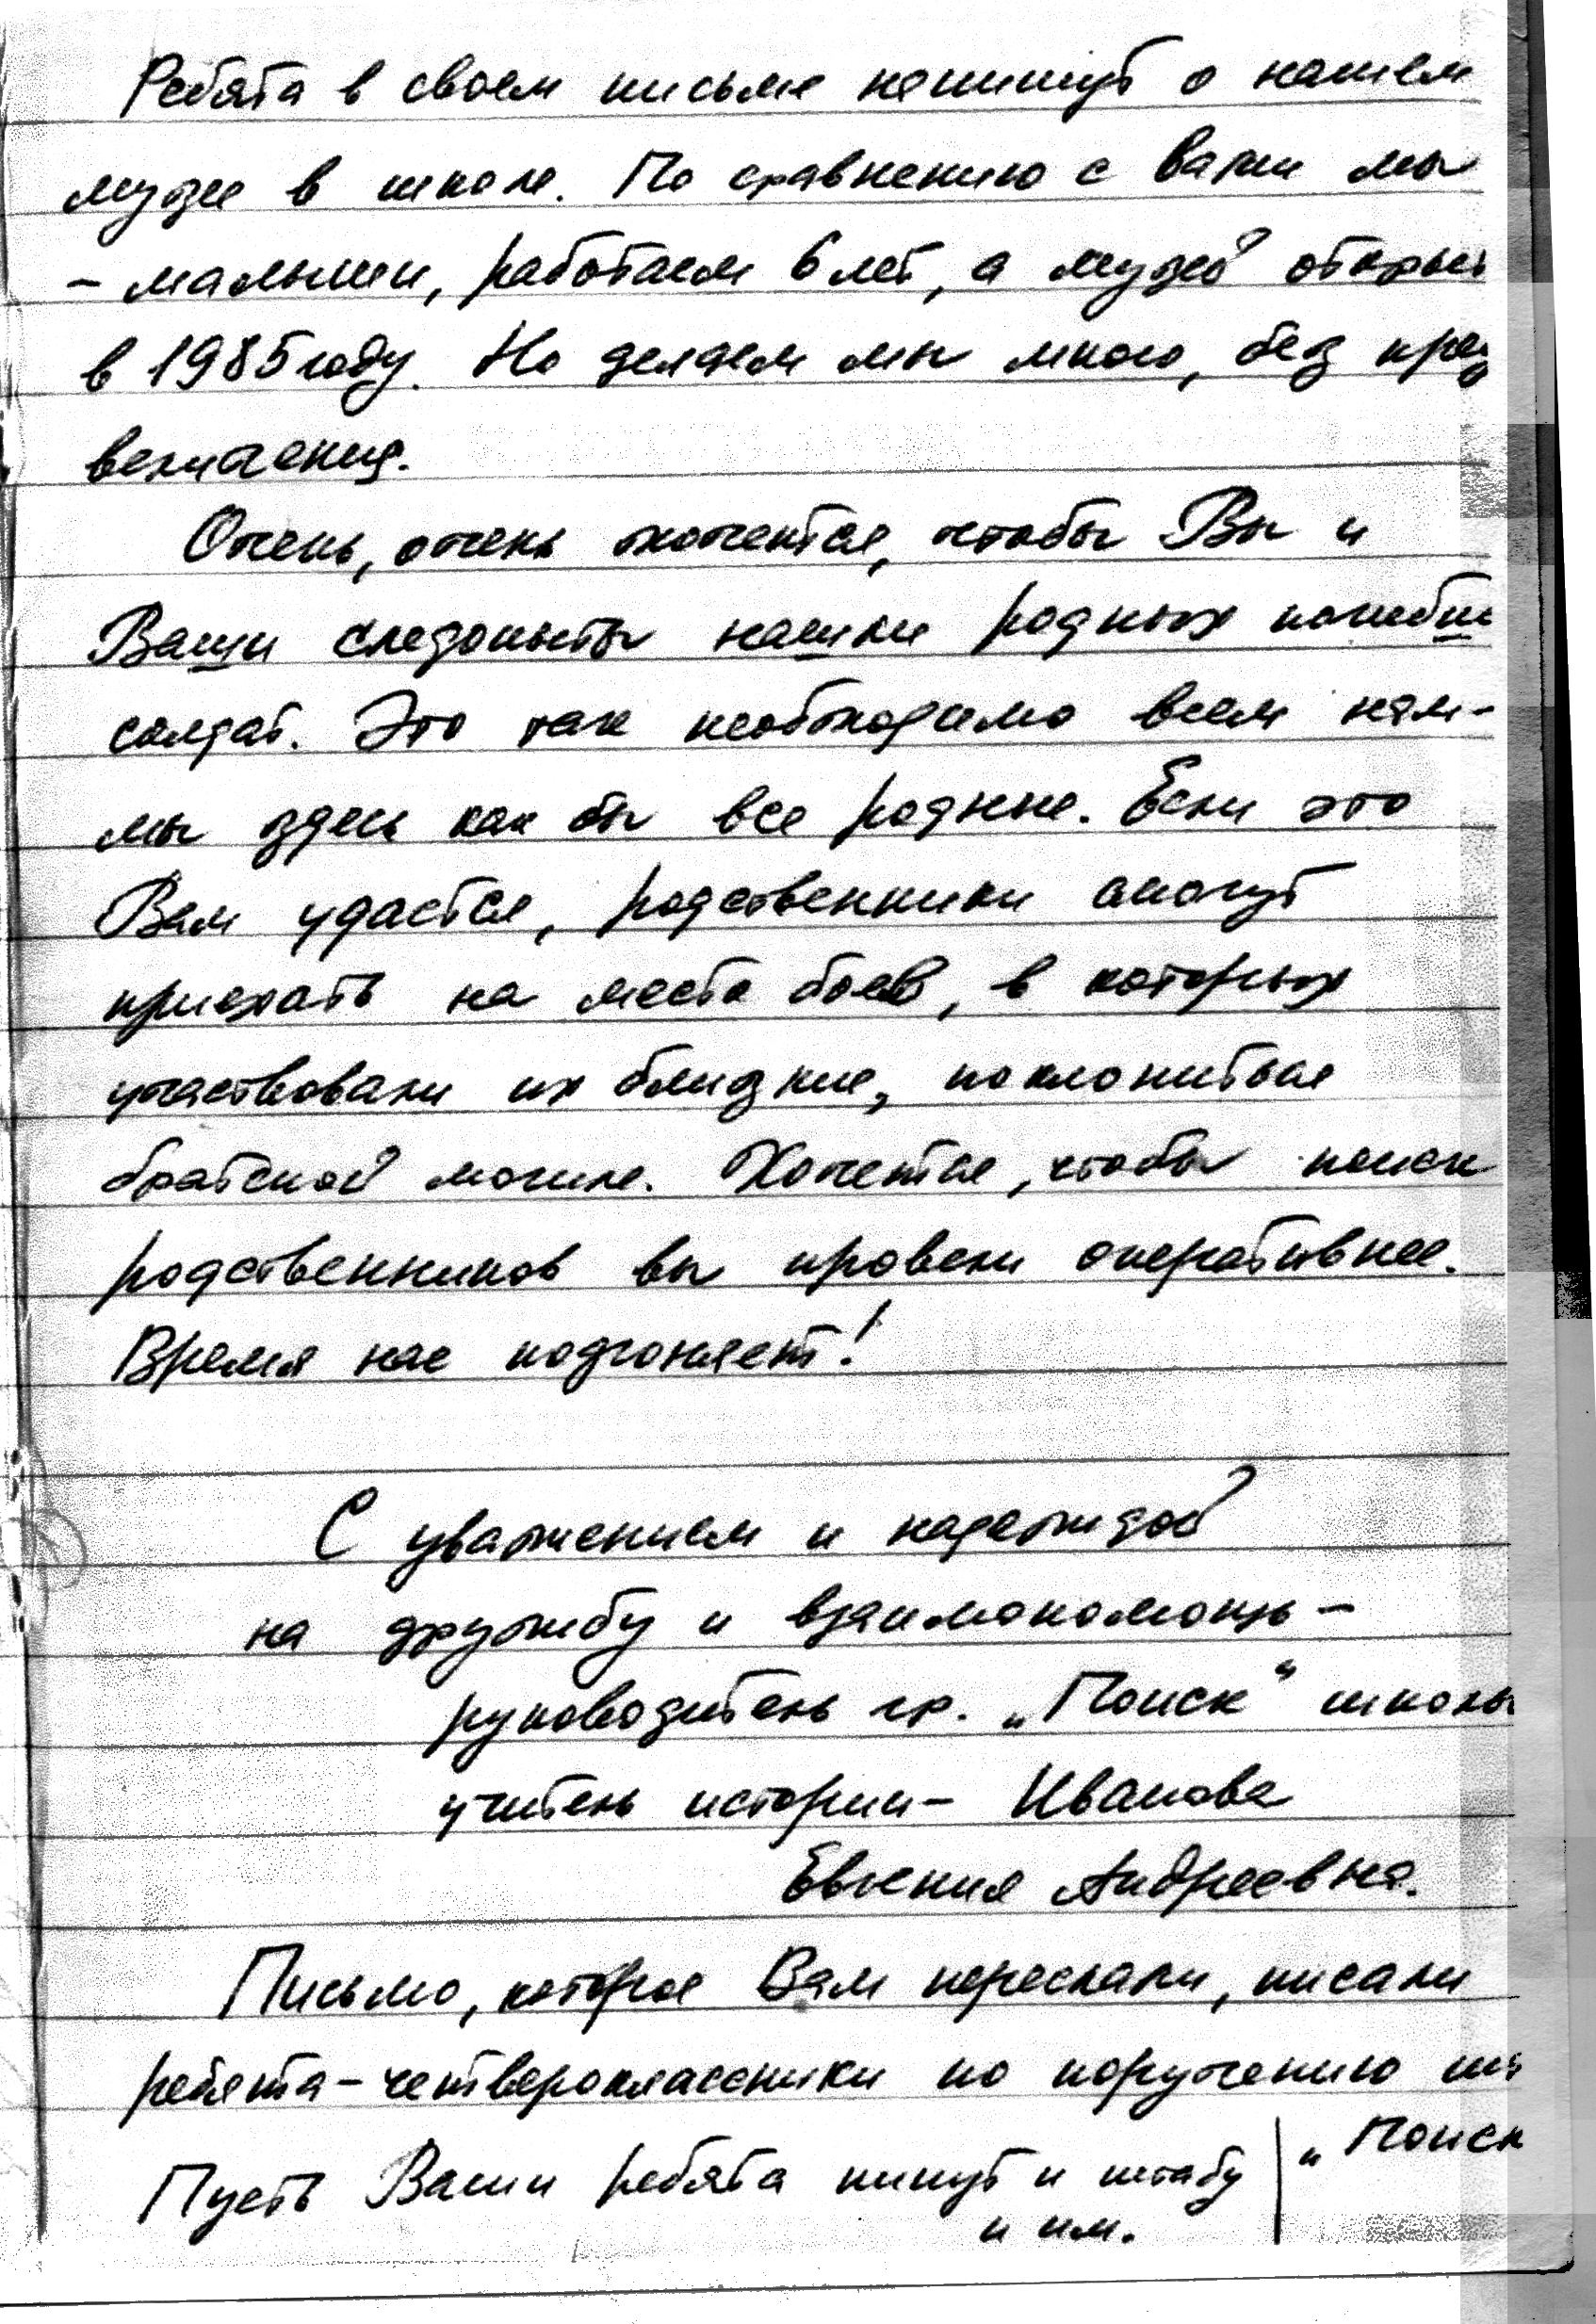 Ребята в своем письме напишут о нашем
музее в школе. По сравнению с вами мы
- малыши, работаем 6 лет, а музей открыт
в 1985 году. Но делаем мы много, без преу
величения.
Очень, очень хочется, чтобы Вы и
Ваши следопыты нашли родных погибш
солдат. Это так необходимо всем нам-
мы здесь как бы все родные. Если это
Вам удастся, родственники смогут
приехать на места боев, в которых
участвовали их близкие, поклониться
братской могиле. Хочется, чтобы поиск
родственников вы провели оперативнее.
Время нас подгоняет!
С уважением и надеждой
на дружбу и взаимопомощь -
руководитель гр. „Поиск“ школы
учитель истории - Иванова
Евгения Андреевна.
Письмо, которое Вам переслали, писали
ребята - четвероклассники по поручению
„Поиск
Пусть Ваши ребята пишут и штабу
и им.